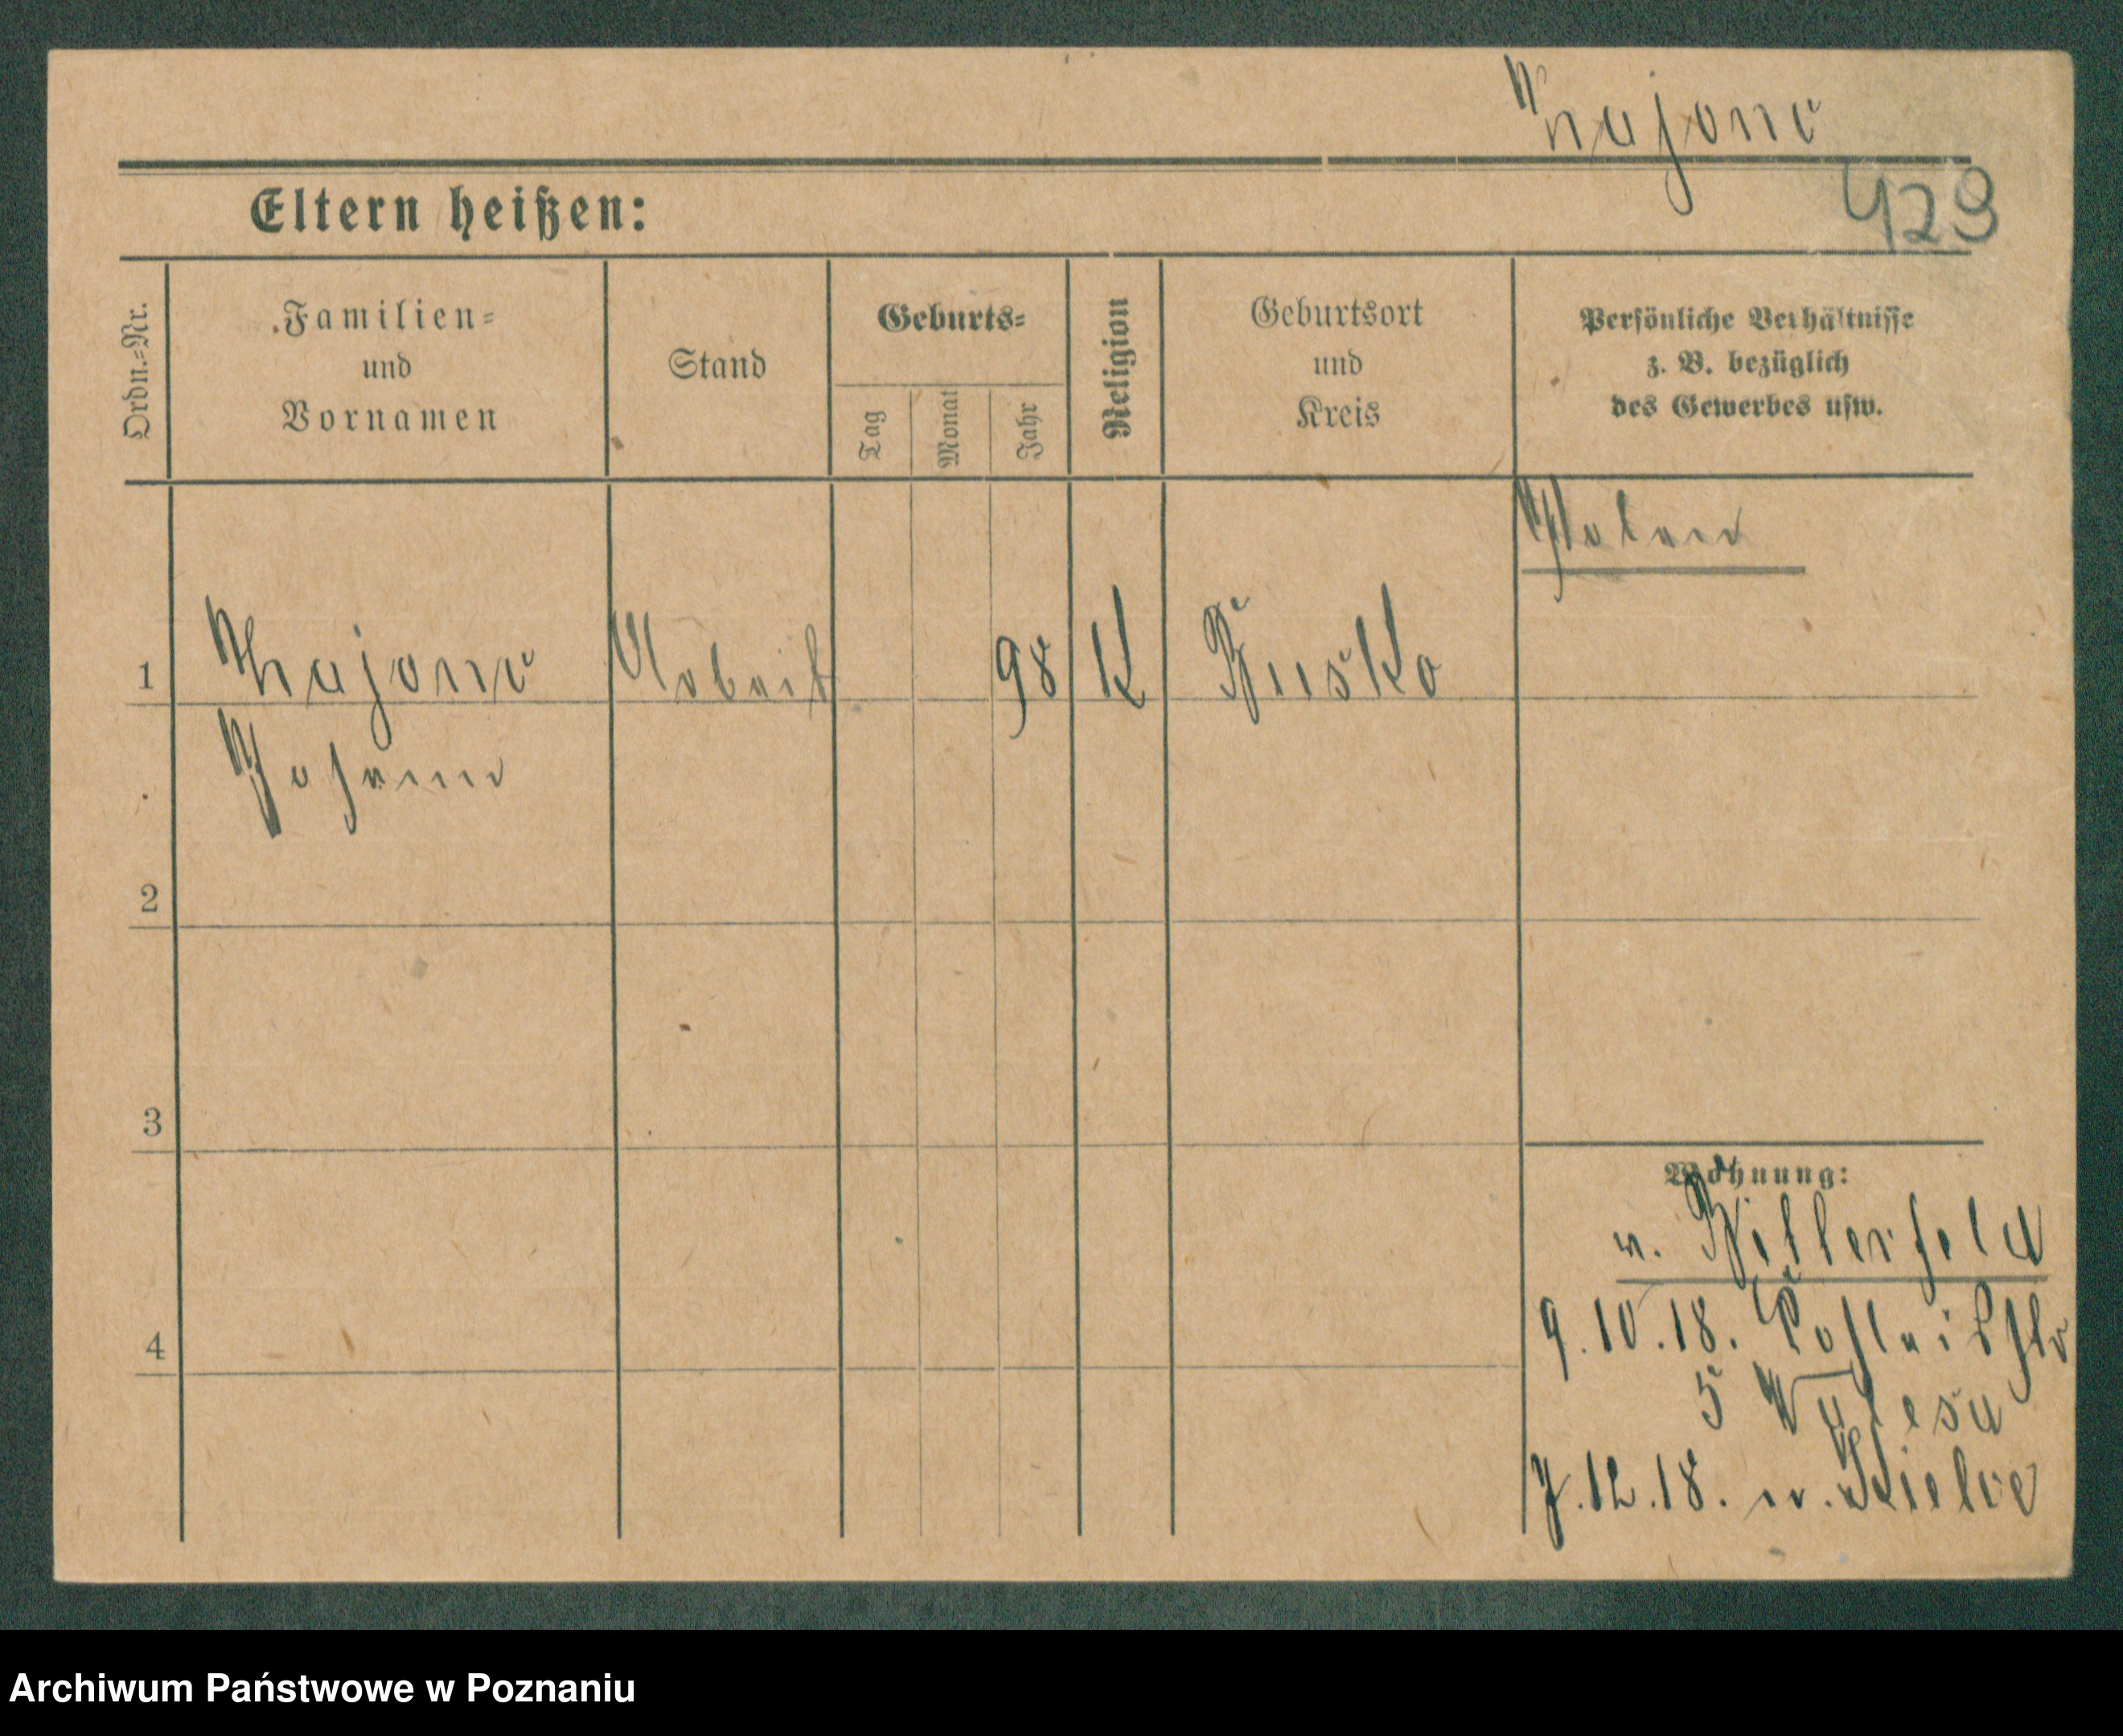 Zajonc
429
Eltern heißen:
Ordn.=Nr.
Familien=
und
Vornamen
Stand
Geburts=
Tag
Monat
Jahr
Religion
Geburtsort
und
Kreis
Persönliche Verhältnisse
z. B. bezüglich
des Gewerbes usw.
Polen
1
Zajonc
Arbeit
98
K
Busko
Johann
2
3
Wohnung:
v. Bitterfeld
9.10.18.
4
5
7.12.18. n. Kielce
Archiwum Państwowe w Poznaniu